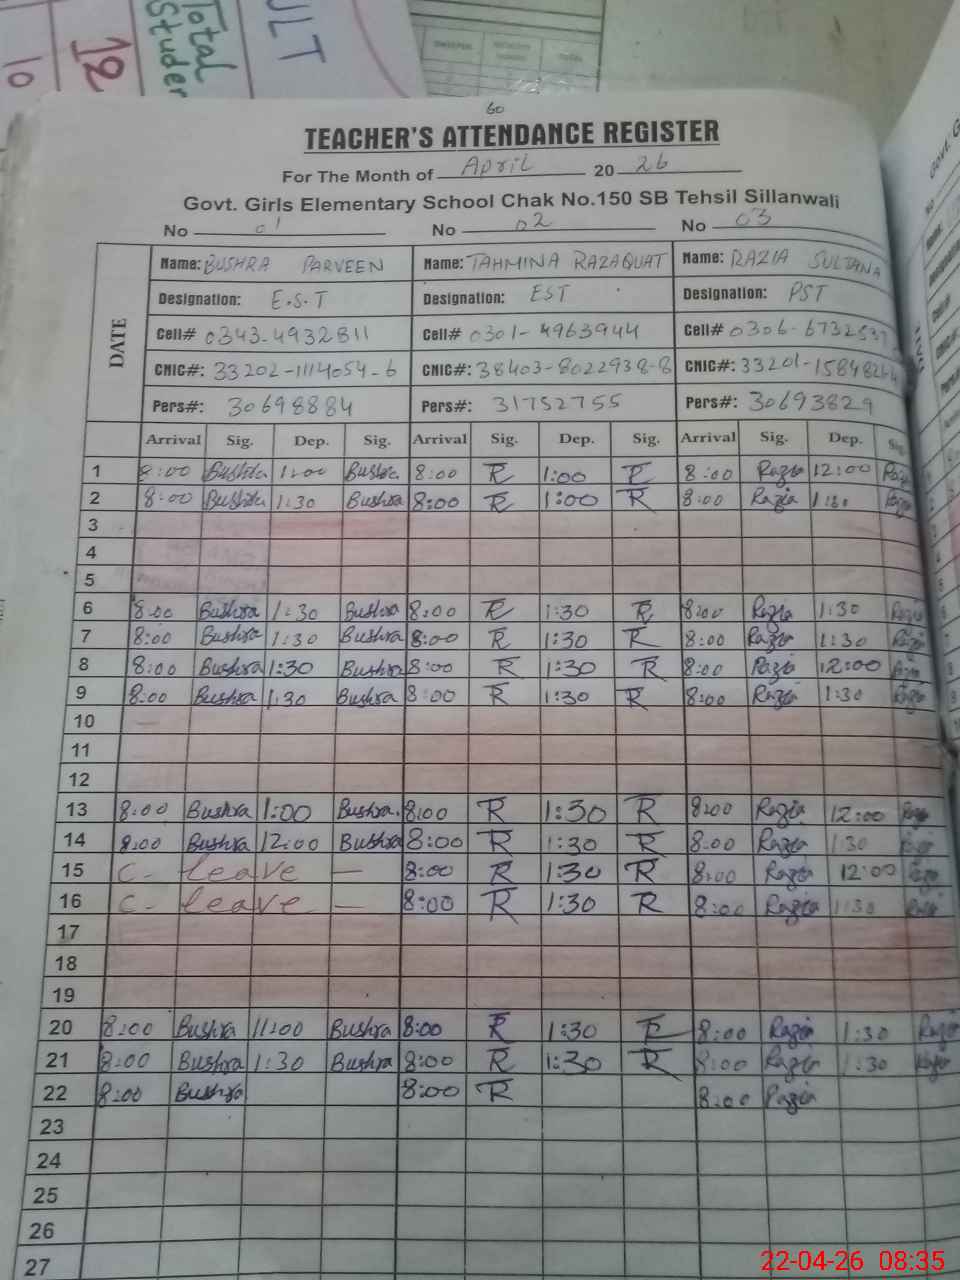 ULT
Total
Studen
12
10
60
TEACHER'S ATTENDANCE REGISTER
For The Month of April 20 26
Govt. Girls Elementary School Chak No.150 SB Tehsil Sillanwali
No 01 No 02 No 03
DATE
Name: BUSHRA PARVEEN Name: TAHMINA RAZAQUAT Name: RAZIA SULTANA
Designation: E.S.T Designation: EST Designation: PST
Cell# 0343-4932811 Cell# 0301-4963944 Cell# 0306-6732537
CNIC#: 33202-1114054-6 CNIC#: 38403-8022938-8 CNIC#: 33201-1584826
Pers#: 30698884 Pers#: 31752755 Pers#: 30693829
Arrival Sig. Dep. Sig. Arrival Sig. Dep. Sig. Arrival Sig. Dep. Sig
1 8:00 Bushra 1:00 Bushra 8:00 R 1:00 R 8:00 Razia 12:00 Razia
2 8:00 Bushra 1:30 Bushra 8:00 R 1:00 R 8:00 Razia 1:30 Razia
3
4
5
6 8:00 Bushra 1:30 Bushra 8:00 R 1:30 R 8:00 Razia 1:30 Razia
7 8:00 Bushra 1:30 Bushra 8:00 R 1:30 R 8:00 Razia 1:30 Razia
8 8:00 Bushra 1:30 Bushra 8:00 R 1:30 R 8:00 Razia 12:00 Razia
9 8:00 Bushra 1:30 Bushra 8:00 R 1:30 R 8:00 Razia 1:30 Razia
10
11
12
13 8:00 Bushra 1:00 Bushra 8:00 R 1:30 R 8:00 Razia 12:00 Razia
14 8:00 Bushra 12:00 Bushra 8:00 R 1:30 R 8:00 Razia 1:30 Razia
15 C- leave - 8:00 R 1:30 R 8:00 Razia 12:00 Razia
16 C- leave - 8:00 R 1:30 R 8:00 Razia 1:30 Razia
17
18
19
20 8:00 Bushra 11:00 Bushra 8:00 R 1:30 R 8:00 Razia 1:30 Razia
21 8:00 Bushra 1:30 Bushra 8:00 R 1:30 R 8:00 Razia 1:30 Razia
22 8:00 Bushra 8:00 R 8:00 Razia
23
24
25
26
27
22-04-26 08:35